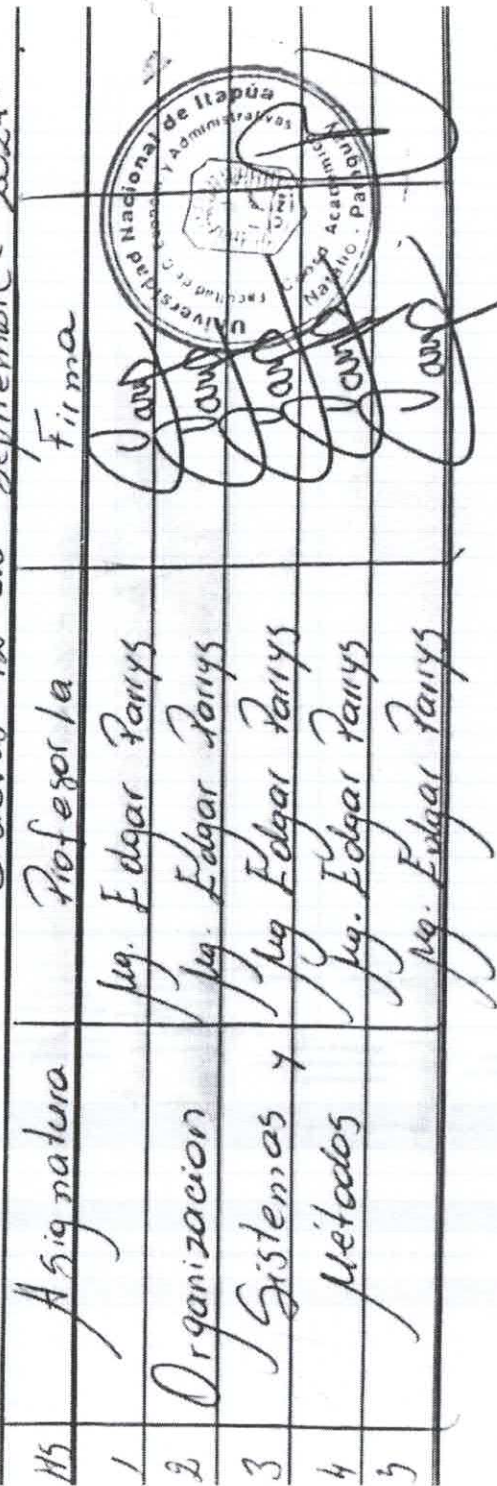 12 de Septiembre 2024
Hs Asignatura Profesor/a Firma
1 Mg. Edgar Parrys
2 Organizacion Mg. Edgar Parrys
3 Sistemas y Mg Edgar Parrys
4 Métodos Mg. Edgar Parrys
5 Mg. Edgar Parrys
Universidad Nacional de Itapúa
Facultad de Administrativas
UNI
Natalio - Paraguay